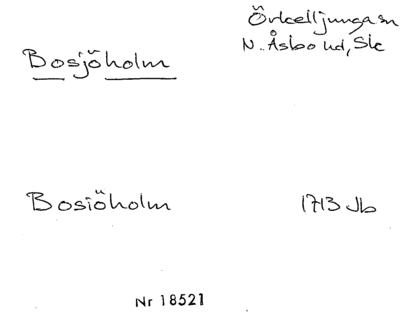 Örkelljunga sn
N. Åsbo hd, Sk
Bosjöholm
Bosiöholm 1713 Jb
Nr 18521